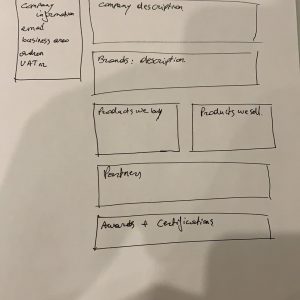 Company
information
email
business area
VAT nr
Company description
Brands: description
Products we buy
Products we sell
Partners
Awards + Certifications